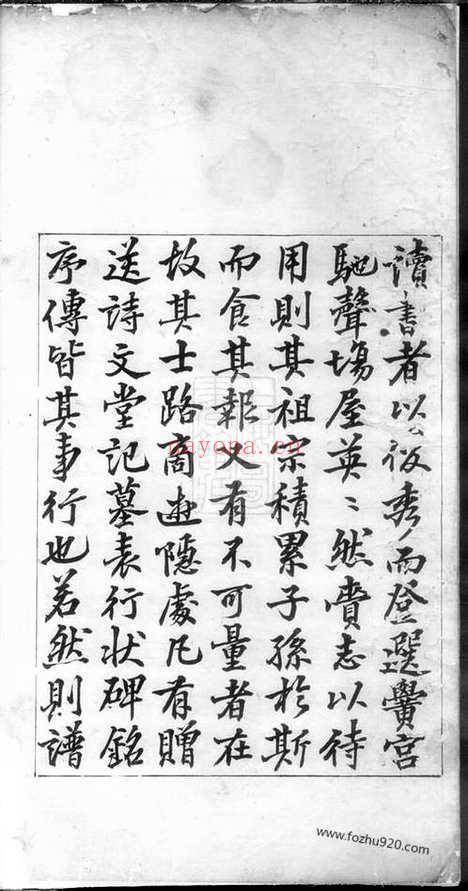 讀書者以俊秀而登選黌宮
馳聲場屋英〻然賫志以待
用則其祖宗積累子孫於斯
而食其報又有不可量者在
故其士路商遊隱處凡有贈
送詩文堂記墓表行状碑銘
序傳皆其事行也若然則譜
nayona.cn
www.fozhu920.com